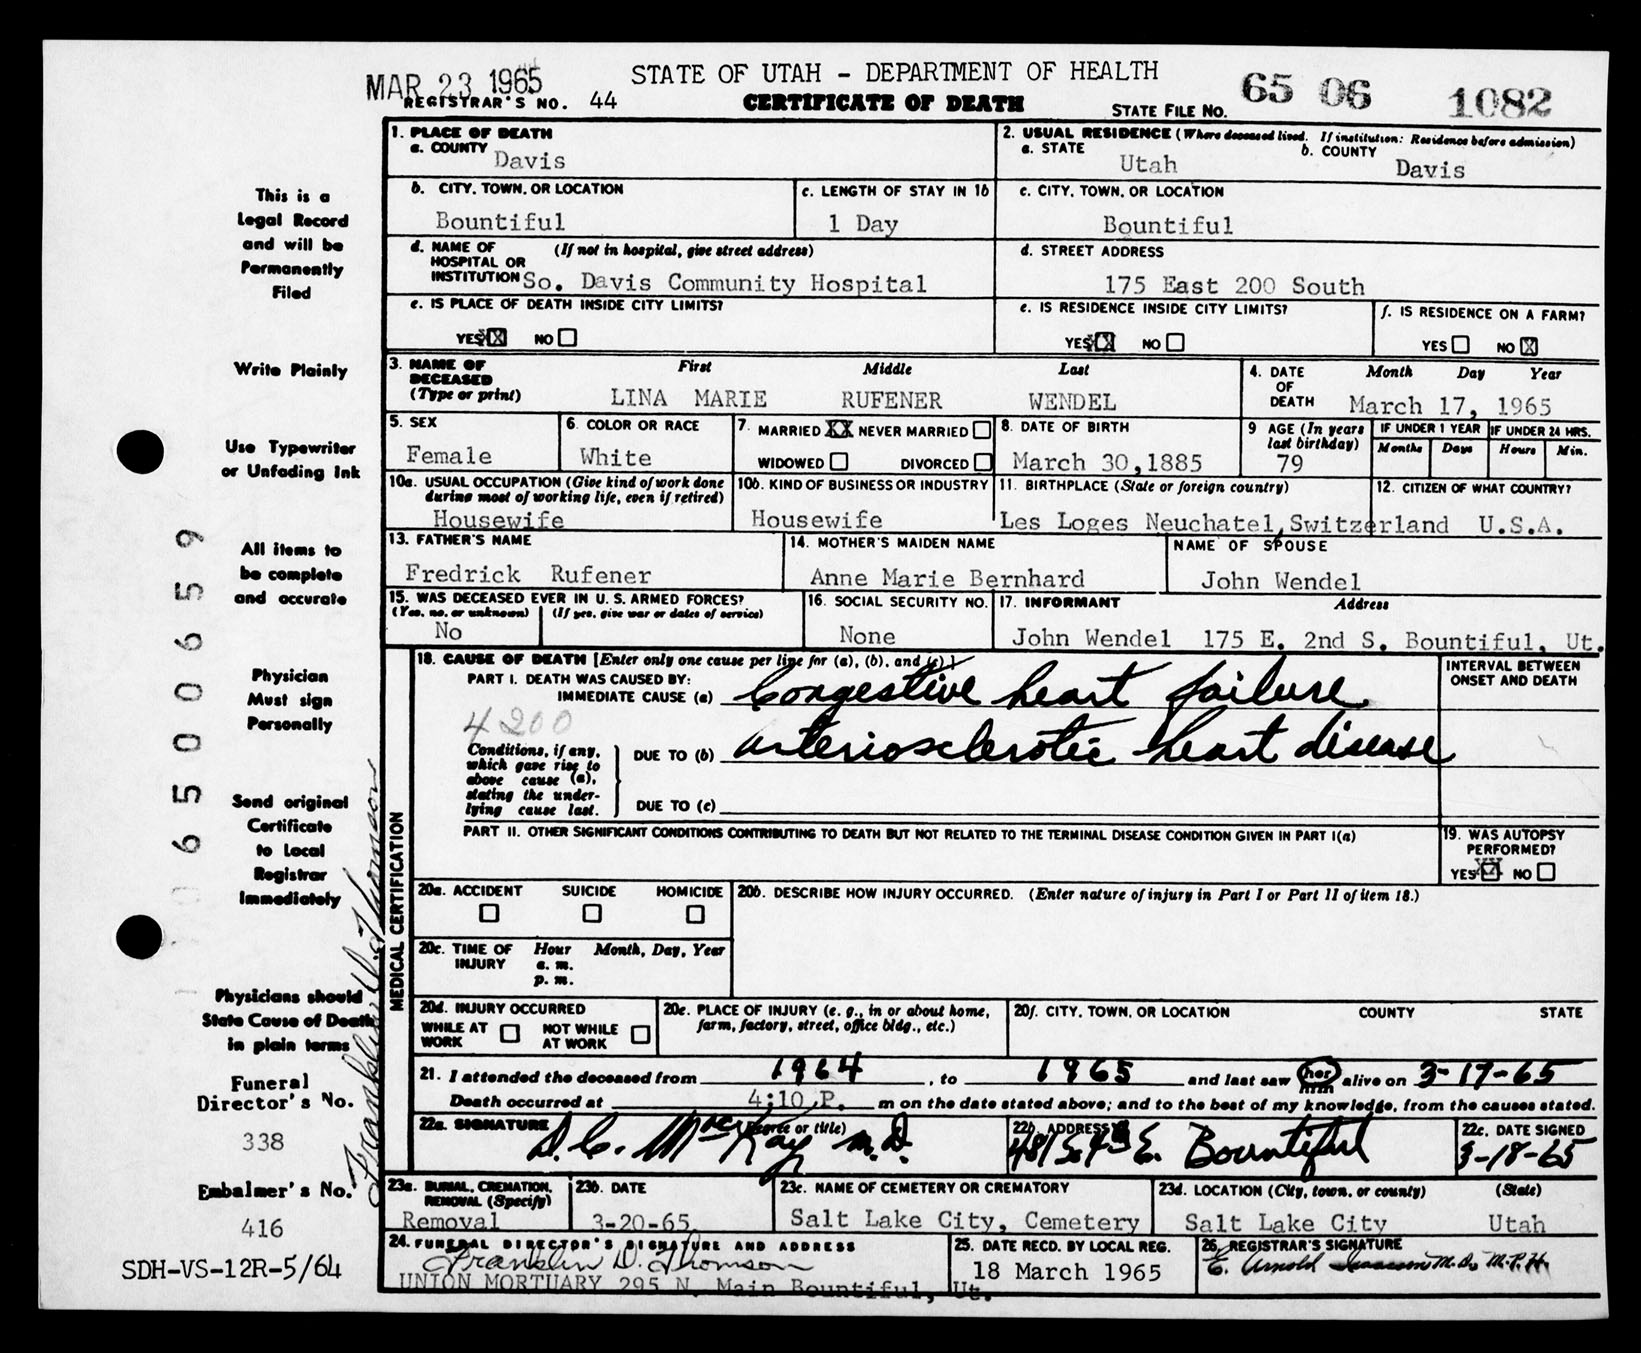 MAR 23 1965
STATE OF UTAH - DEPARTMENT OF HEALTH
REGISTRAR'S NO. 44
CERTIFICATE OF DEATH
STATE FILE NO. 65 06 1082
This is a
Legal Record
and will be
Permanently
Filed
Write Plainly
Use Typewriter
or Unfading Ink
All items to
be complete
and accurate
Physician
Must sign
Personally
Send original
Certificate
to Local
Registrar
Immediately
Physicians should
State Cause of Death
in plain terms
Funeral
Director's No.
338
Embalmer's No.
416
SDH-VS-12R-5/64
0 6 5 0 0 6 5 9
Franklin D. Thomson
1. PLACE OF DEATH
a. COUNTY Davis
2. USUAL RESIDENCE (Where deceased lived. If institution: Residence before admission)
a. STATE Utah b. COUNTY Davis
b. CITY, TOWN, OR LOCATION
Bountiful
c. LENGTH OF STAY IN 1b
1 Day
c. CITY, TOWN, OR LOCATION
Bountiful
d. NAME OF (If not in hospital, give street address)
HOSPITAL OR
INSTITUTION So. Davis Community Hospital
d. STREET ADDRESS
175 East 200 South
e. IS PLACE OF DEATH INSIDE CITY LIMITS?
YES X NO
e. IS RESIDENCE INSIDE CITY LIMITS?
YES X NO
f. IS RESIDENCE ON A FARM?
YES NO X
3. NAME OF First Middle Last
DECEASED
(Type or print) LINA MARIE RUFENER WENDEL
4. DATE Month Day Year
OF
DEATH March 17, 1965
5. SEX
Female
6. COLOR OR RACE
White
7. MARRIED XX NEVER MARRIED
WIDOWED DIVORCED
8. DATE OF BIRTH
March 30,1885
9 AGE (In years
last birthday)
79
IF UNDER 1 YEAR IF UNDER 24 HRS.
Months Days Hours Min.
10a. USUAL OCCUPATION (Give kind of work done
during most of working life, even if retired)
Housewife
10b. KIND OF BUSINESS OR INDUSTRY
Housewife
11. BIRTHPLACE (State or foreign country)
Les Loges Neuchatel, Switzerland
12. CITIZEN OF WHAT COUNTRY?
U.S.A.
13. FATHER'S NAME
Fredrick Rufener
14. MOTHER'S MAIDEN NAME
Anne Marie Bernhard
NAME OF SPOUSE
John Wendel
15. WAS DECEASED EVER IN U.S. ARMED FORCES?
(Yes, no, or unknown) (If yes, give war or dates of service)
No
16. SOCIAL SECURITY NO.
None
17. INFORMANT Address
John Wendel 175 E. 2nd S. Bountiful, Ut.
MEDICAL CERTIFICATION
18. CAUSE OF DEATH [Enter only one cause per line for (a), (b), and (c).]
PART I. DEATH WAS CAUSED BY:
IMMEDIATE CAUSE (a) Congestive heart failure
INTERVAL BETWEEN
ONSET AND DEATH
4200
Conditions, if any,
which gave rise to
above cause (a),
stating the under-
lying cause last.
DUE TO (b) arteriosclerotic heart disease
DUE TO (c)
PART II. OTHER SIGNIFICANT CONDITIONS CONTRIBUTING TO DEATH BUT NOT RELATED TO THE TERMINAL DISEASE CONDITION GIVEN IN PART I(a)
19. WAS AUTOPSY
PERFORMED?
YES XX NO
20a. ACCIDENT SUICIDE HOMICIDE
20b. DESCRIBE HOW INJURY OCCURRED. (Enter nature of injury in Part I or Part II of item 18.)
20c. TIME OF Hour Month, Day, Year
INJURY a. m.
p. m.
20d. INJURY OCCURRED
WHILE AT WORK NOT WHILE AT WORK
20e. PLACE OF INJURY (e. g., in or about home,
farm, factory, street, office bldg., etc.)
20f. CITY, TOWN, OR LOCATION COUNTY STATE
21. I attended the deceased from 1964, to 1965 and last saw her him alive on 3-17-65
Death occurred at 4:10 P. m on the date stated above; and to the best of my knowledge, from the causes stated.
22a. SIGNATURE (Degree or title)
D. C. MacKay M.D.
22b. ADDRESS
E. Bountiful
22c. DATE SIGNED
3-18-65
23a. BURIAL, CREMATION,
REMOVAL (Specify)
Removal
23b. DATE
3-20-65
23c. NAME OF CEMETERY OR CREMATORY
Salt Lake City, Cemetery
23d. LOCATION (City, town, or county) (State)
Salt Lake City Utah
24. FUNERAL DIRECTOR'S SIGNATURE AND ADDRESS
Franklin D. Thomson
UNION MORTUARY 295 N. Main Bountiful, Ut.
25. DATE RECD. BY LOCAL REG.
18 March 1965
26. REGISTRAR'S SIGNATURE
E. Arnold Isaacson M.D., M.P.H.